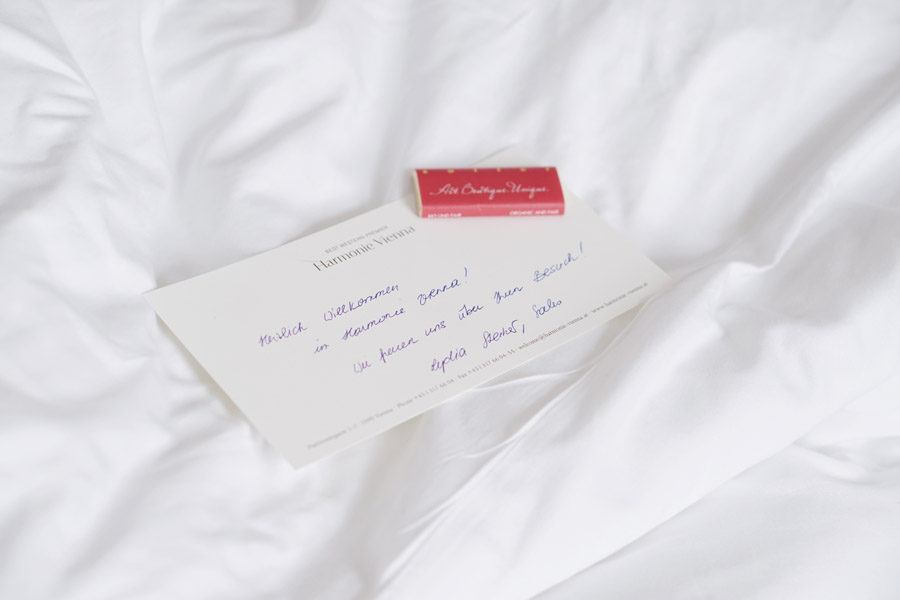 Art. Boutique. Unique.
BIO UND FAIR ORGANIC AND FAIR
BEST WESTERN PREMIER
Harmonie Vienna
Herzlich Willkommen
im Harmonie Vienna!
Wir freuen uns über Ihren Besuch!
Lydia Sales
Phone +43 1 317 66 04 · Fax +43 1 317 66 04-55 · welcome@harmonie-vienna.at · www.harmonie-vienna.at